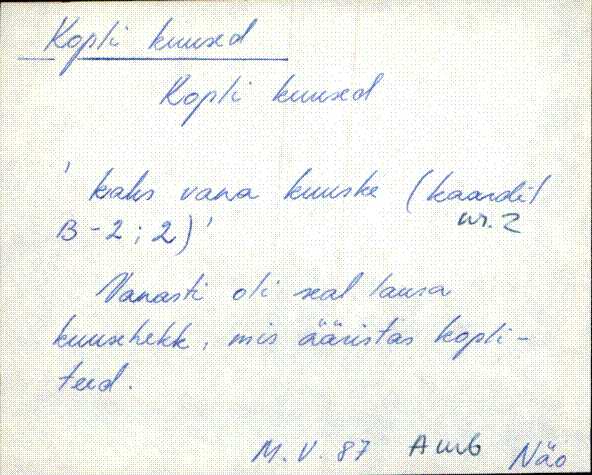 Kopli kuused
Kopli kuused
' kaks vana kuuske (kaardil
nr. 2
B-2; 2)'
Vanasti oli seal lausa
kuusehekk, mis ääristas kopli-
teed.
M. V. 87 Amb Näo